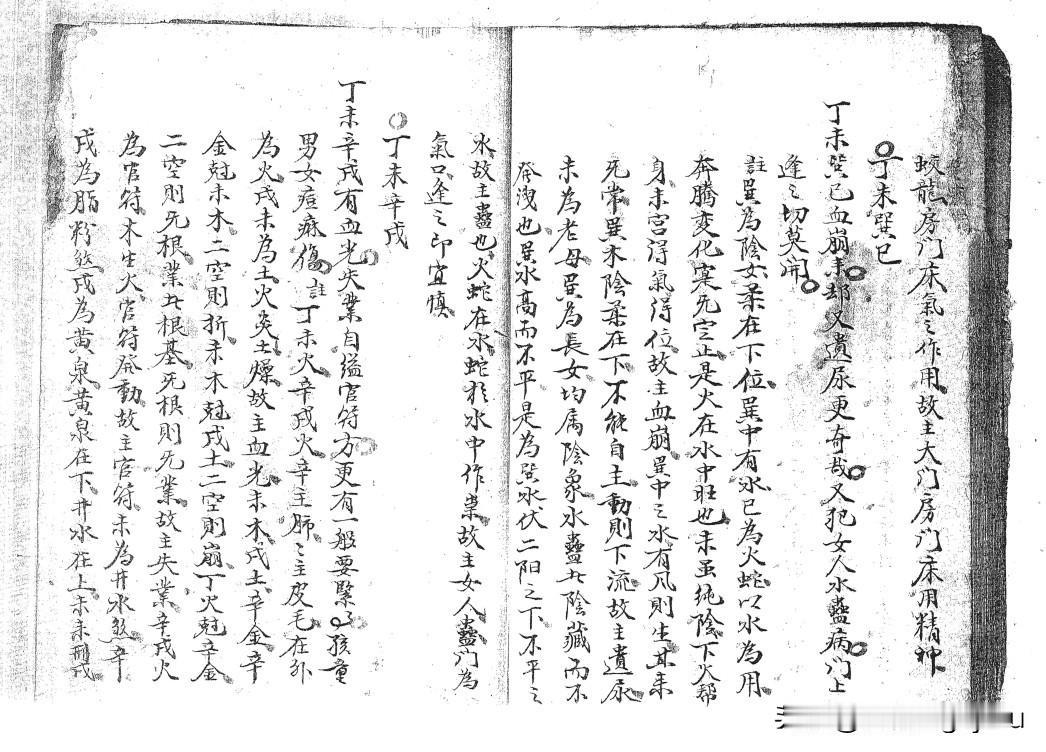 蛟龍房门床氣之作用故主大门房门床用精神
丁未巽巳
丁未巽巳血崩未却又遺尿更奇哉又犯女人水蠱病门上
逢之切莫開
註巽為陰女柔在下位巽中有水巳為火蛇以水為用
奔騰变化寔无定止是火在水中旺也未虽純陰下火帮
身未宫淂氣得位故主血崩巽中之水有风則生其未
死常巽木陰柔在下不能自主動則下流故主遺尿
未為老母巽為長女均属陰象水蠱共陰藏而不
發洩也巽水高而不平是為巽水伏二阳之下不平之
水故主蠱也火蛇在水蛇於水中作祟故主女人蠱门為
氣口逢之即宜慎
丁未辛戌
丁未辛戌有血光失業自缢官符方更有一般要緊孩童
男女痘痳傷註丁未火辛戌火辛主肺之主皮毛在外
為火戌未為土火炎土燥故主血光未木戌土辛金辛
金尅未木二空則折未木尅戌土二空則崩丁火尅辛金
二空則无根業共根基死根則无業故主失業辛戌火
為官符木生火官符發動故主官符未為井水煞辛
戌為脂粉煞戌為黄泉黄泉在下井水在上未未刑戌